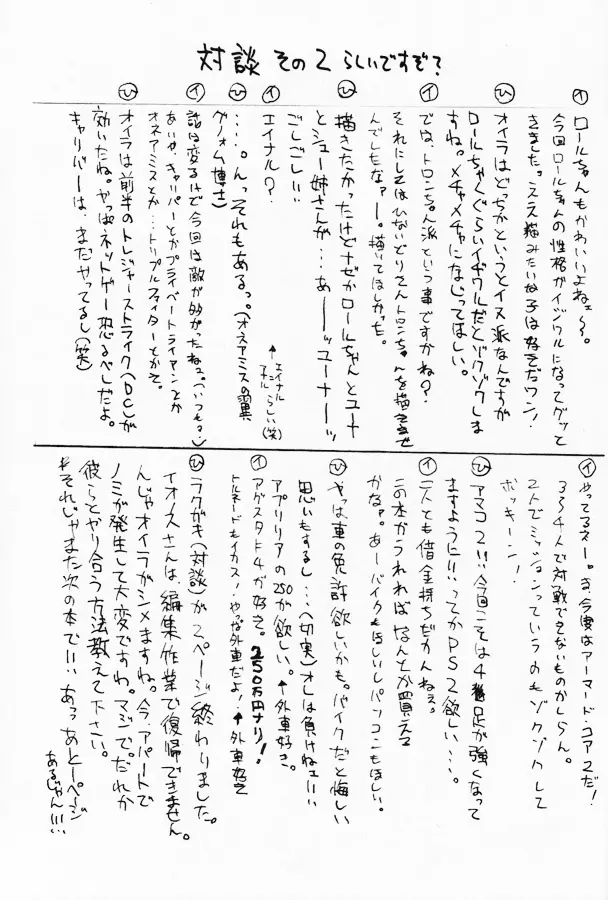 対談 その2 らしいですぞ?
イ ロールちゃんもかわいいよねェ〜〜。
今回ロールちゃんの性格がイジワルになってグッと
きました。ええ描みたいな子は好きだワン!
ひ オイラはどっちかというとイヌ派なんですが
ロールちゃんぐらいイヂワルだとゾクゾクしま
すね。メチャメチャにないってほしい。
イ では、トロンちゃん派という事ですかね?
それにしてはひないどりさんトロンちゃんを描きませ
んでしたなァー。描いてほしかった。
ひ 描きたかったけどナゼかロールちゃんとユーナ
とシュー姉さんが…あ———ッユーナ———ッ
ごしごしい
イ エイナル?
↑エイナル らしい(笑)
ひ …。んっそれもあるっ。(オネアミスの翼
グノォム博士)
イ 話は変るけど今回は敵が多かったねっ。(いつも?)
あいや、キャリバーとかプライベートライアンとか
オネアミスとか…トリプルファイターとかさ。
ひ オイラは前半のトレジャーストライク(DC)が
効いたね。やっぱネットゲー恐るべしだよ。
キャリバーは、まだやってるし(笑)
イ やってるネー。お、今度はアーマード・コア2だ!
3〜4人で対戦できないものかしらん。
2人でミッションっていうのもゾクゾクして
ボッキーン!
ひ アマコア2!!今回こそは4脚足が強くなって
ますように!!ってかPS2欲しい…。
イ 二人とも借金持ちだかんねェ。
この本がうれればなんとか買える
かなァ。あーバイクもほしいしパソコンもほしい。
ひ やっぱ車の免許欲しいかも。バイクだと悔しい
思いもするし…(切実)オレは負けねェ!!!
アプリリアの250が欲しい。↑外車好き。
イ アグスタF4が好き。250万円ナリ!
トルネードもイカス!やな外車だよ!↑外車好き
ひ ラクガキ(対談)が2ページ終わりました。
イオノスさんは編集作業で復帰できません。
んじゃオイラがシメますね。今、アパートで
ノミが発生して大変ですね。マジで。だれか
彼らとやり合う方法教えて下さい。
それじゃまた次の本で!!!あっあと一ページ
あるじゃん!!!